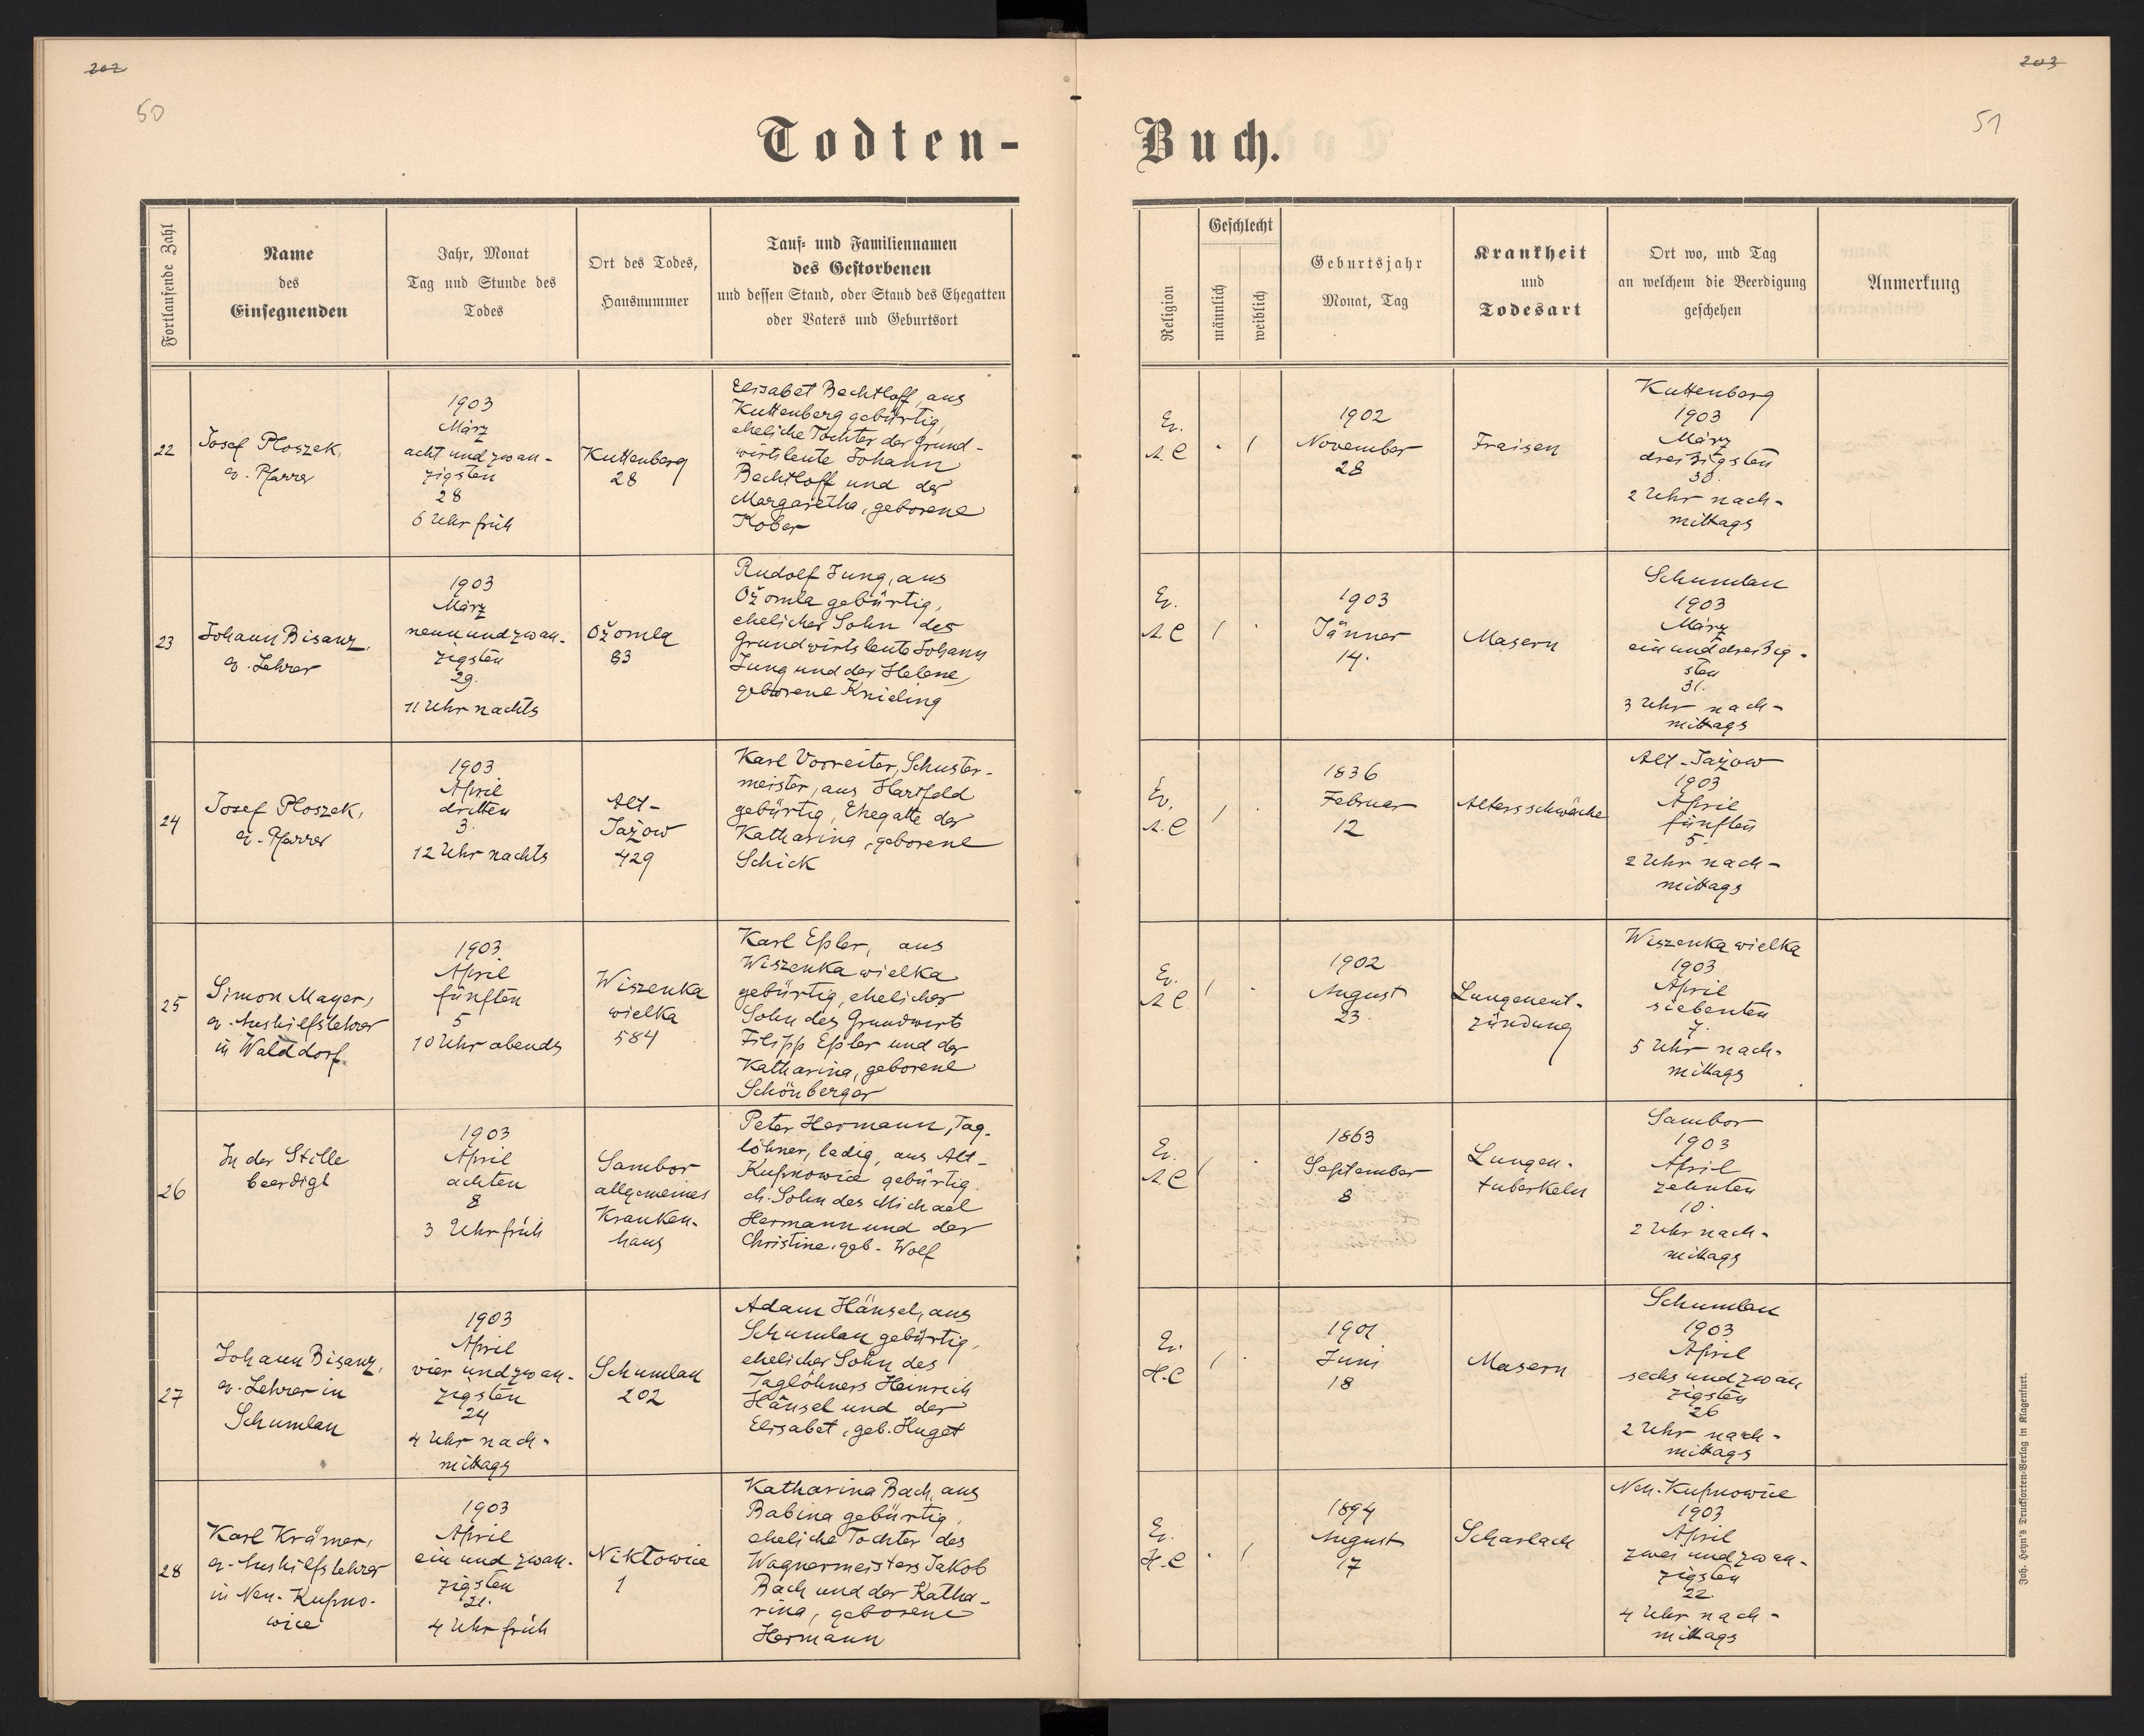 202
203
50
51
Todten-
Buch.
Fortlaufende Zahl
Name
des
Einsegnenden
Jahr, Monat
Tag und Stunde des
Todes
Ort des Todes,
Hausnummer
Tauf- und Familiennamen
des Gestorbenen
und dessen Stand, oder Stand des Ehegatten
oder Vaters und Geburtsort
Religion
Geschlecht
männlich
weiblich
Geburtsjahr
Monat, Tag
Krankheit
und
Todesart
Ort wo, und Tag
an welchem die Beerdigung
geschehen
Anmerkung
22
Josef Ploszek,
ev. Pfarrer
1903
März
acht und zwan-
zigsten
28
6 Uhr früh
Kuttenberg
28
Elisabet Bechtloff, aus
Kuttenberg gebürtig,
eheliche Tochter der Grund-
wirtsleute Johann
Bechtloff und der
Margaretha, geborene
Kober
Ev.
A.C
1902
November
28
Fraisen
Kuttenberg
1903
März
dreißigsten
30.
2 Uhr nach-
mittags
23
Johann Bisanz,
ev. Lehrer
1903
März
neun und zwan-
zigsten
29.
11 Uhr nachts
Ožomla
83
Rudolf Jung, aus
Ožomla gebürtig,
ehelicher Sohn des
Grundwirtsleute Johann
Jung und der Helene,
geborene Knieling
Ev.
A.C
1903
Jänner
14.
Masern
Schumlau
1903
März
ein und dreißig-
sten
31.
3 Uhr nach-
mittags
24
Josef Ploszek,
ev. Pfarrer
1903
April
dritten
3.
12 Uhr nachts
Alt-
Jażow
429
Karl Vorreiter, Schuster-
meister, aus Hartfeld
gebürtig, Ehegatte der
Katharina, geborene
Schick
Ev.
A.C
1836
Februar
12
Altersschwäche
Alt-Jażow
1903
April
fünften
5.
2 Uhr nach-
mittags
25
Simon Mayer,
ev. Aushilfslehrer
in Walddorf.
1903.
April
fünften
5
10 Uhr abends
Wiszenka
wielka
584
Karl Eßler, aus
Wiszenka wielka
gebürtig, ehelicher
Sohn des Grundwirts
Filipp Eßler und der
Katharina, geborene
Schönberger
Ev.
A.C
1902
August
23.
Lungenent-
zündung
Wiszenka wielka
1903
April
siebenten
7.
5 Uhr nach-
mittags
26
In der Stille
beerdigt
1903
April
achten
8
3 Uhr früh
Sambor
allgemeines
Kranken-
haus
Peter Hermann, Tag-
löhner, ledig, aus Alt-
Kupnowice gebürtig.
eh. Sohn des Michael
Hermann und der
Christine, geb. Wolf
Ev.
A.C
1863
September
8
Lungen-
tuberkeln
Sambor
1903
April
zehnten
10.
2 Uhr nach-
mittags
27
Johann Bisanz,
ev. Lehrer in
Schumlau
1903
April
vier und zwan-
zigsten
24
4 Uhr nach-
mittags
Schumlau
202
Adam Hänsel, aus
Schumlau gebürtig,
ehelicher Sohn des
Taglöhners Heinrich
Hänsel und der
Elisabet, geb. Huget
Ev.
H.C
1901
Juni
18
Masern
Schumlau
1903
April
sechs und zwan
zigsten
26
2 Uhr nach-
mittags
28
Karl Krämer,
ev. Aushilfslehrer
in Neu-Kupno-
wice
1903
April
ein und zwan-
zigsten
21.
4 Uhr früh
Nikłowice
1
Katharina Bach, aus
Babina gebürtig,
eheliche Tochter des
Wagnermeisters Jakob
Bach und der Katha-
rina, geborene
Hermann
Ev.
H.C
1894
August
17
Scharlach
Neu-Kupnowice
1903
April
zwei und zwan-
zigsten
22.
4 Uhr nach-
mittags
Joh. Heyn's Drucksorten-Verlag in Klagenfurt.